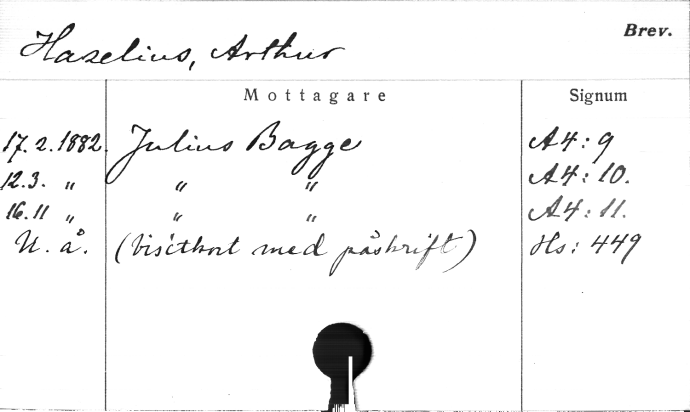 Hazelius, Arthur Brev.
Mottagare Signum
17.2.1882. Julius Bagge A4:9
12.3. " " " A4:10.
16.11 " " " A4:11.
U. å. (Visitkort med påskrift) Hs: 449